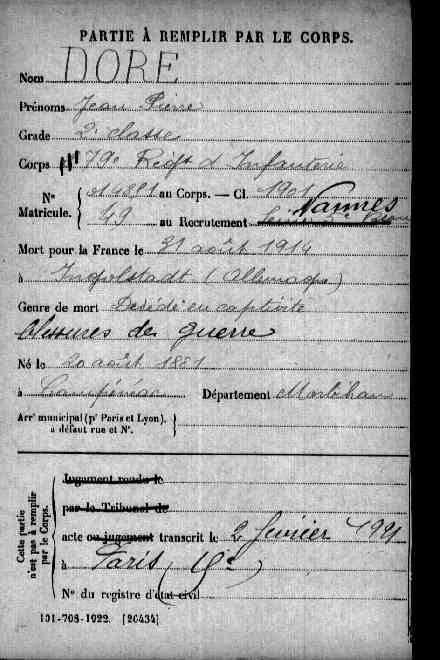 PARTIE À REMPLIR PAR LE CORPS.
Nom DORE
Prénoms Jean Pierre
Grade 2e classe
Corps 79e Regt d'Infanterie
Nº
Matricule. { 14851 au Corps. — Cl. 1901 Vannes
49 au Recrutement
Mort pour la France le 31 août 1914
à Ingolstadt (Allemagne)
Genre de mort Décédé en captivité
blessures de guerre
Né le 20 août 1881
à Campénéac Département Morbihan
Arrt municipal (pr Paris et Lyon), }
à défaut rue et Nº.
Cette partie n'est pas à remplir par le Corps.
Jugement rendu le
par le Tribunal de
acte ou jugement transcrit le 2 février 1921
à Paris (19e)
Nº du registre d'état civil
101-708-1922. [26434]